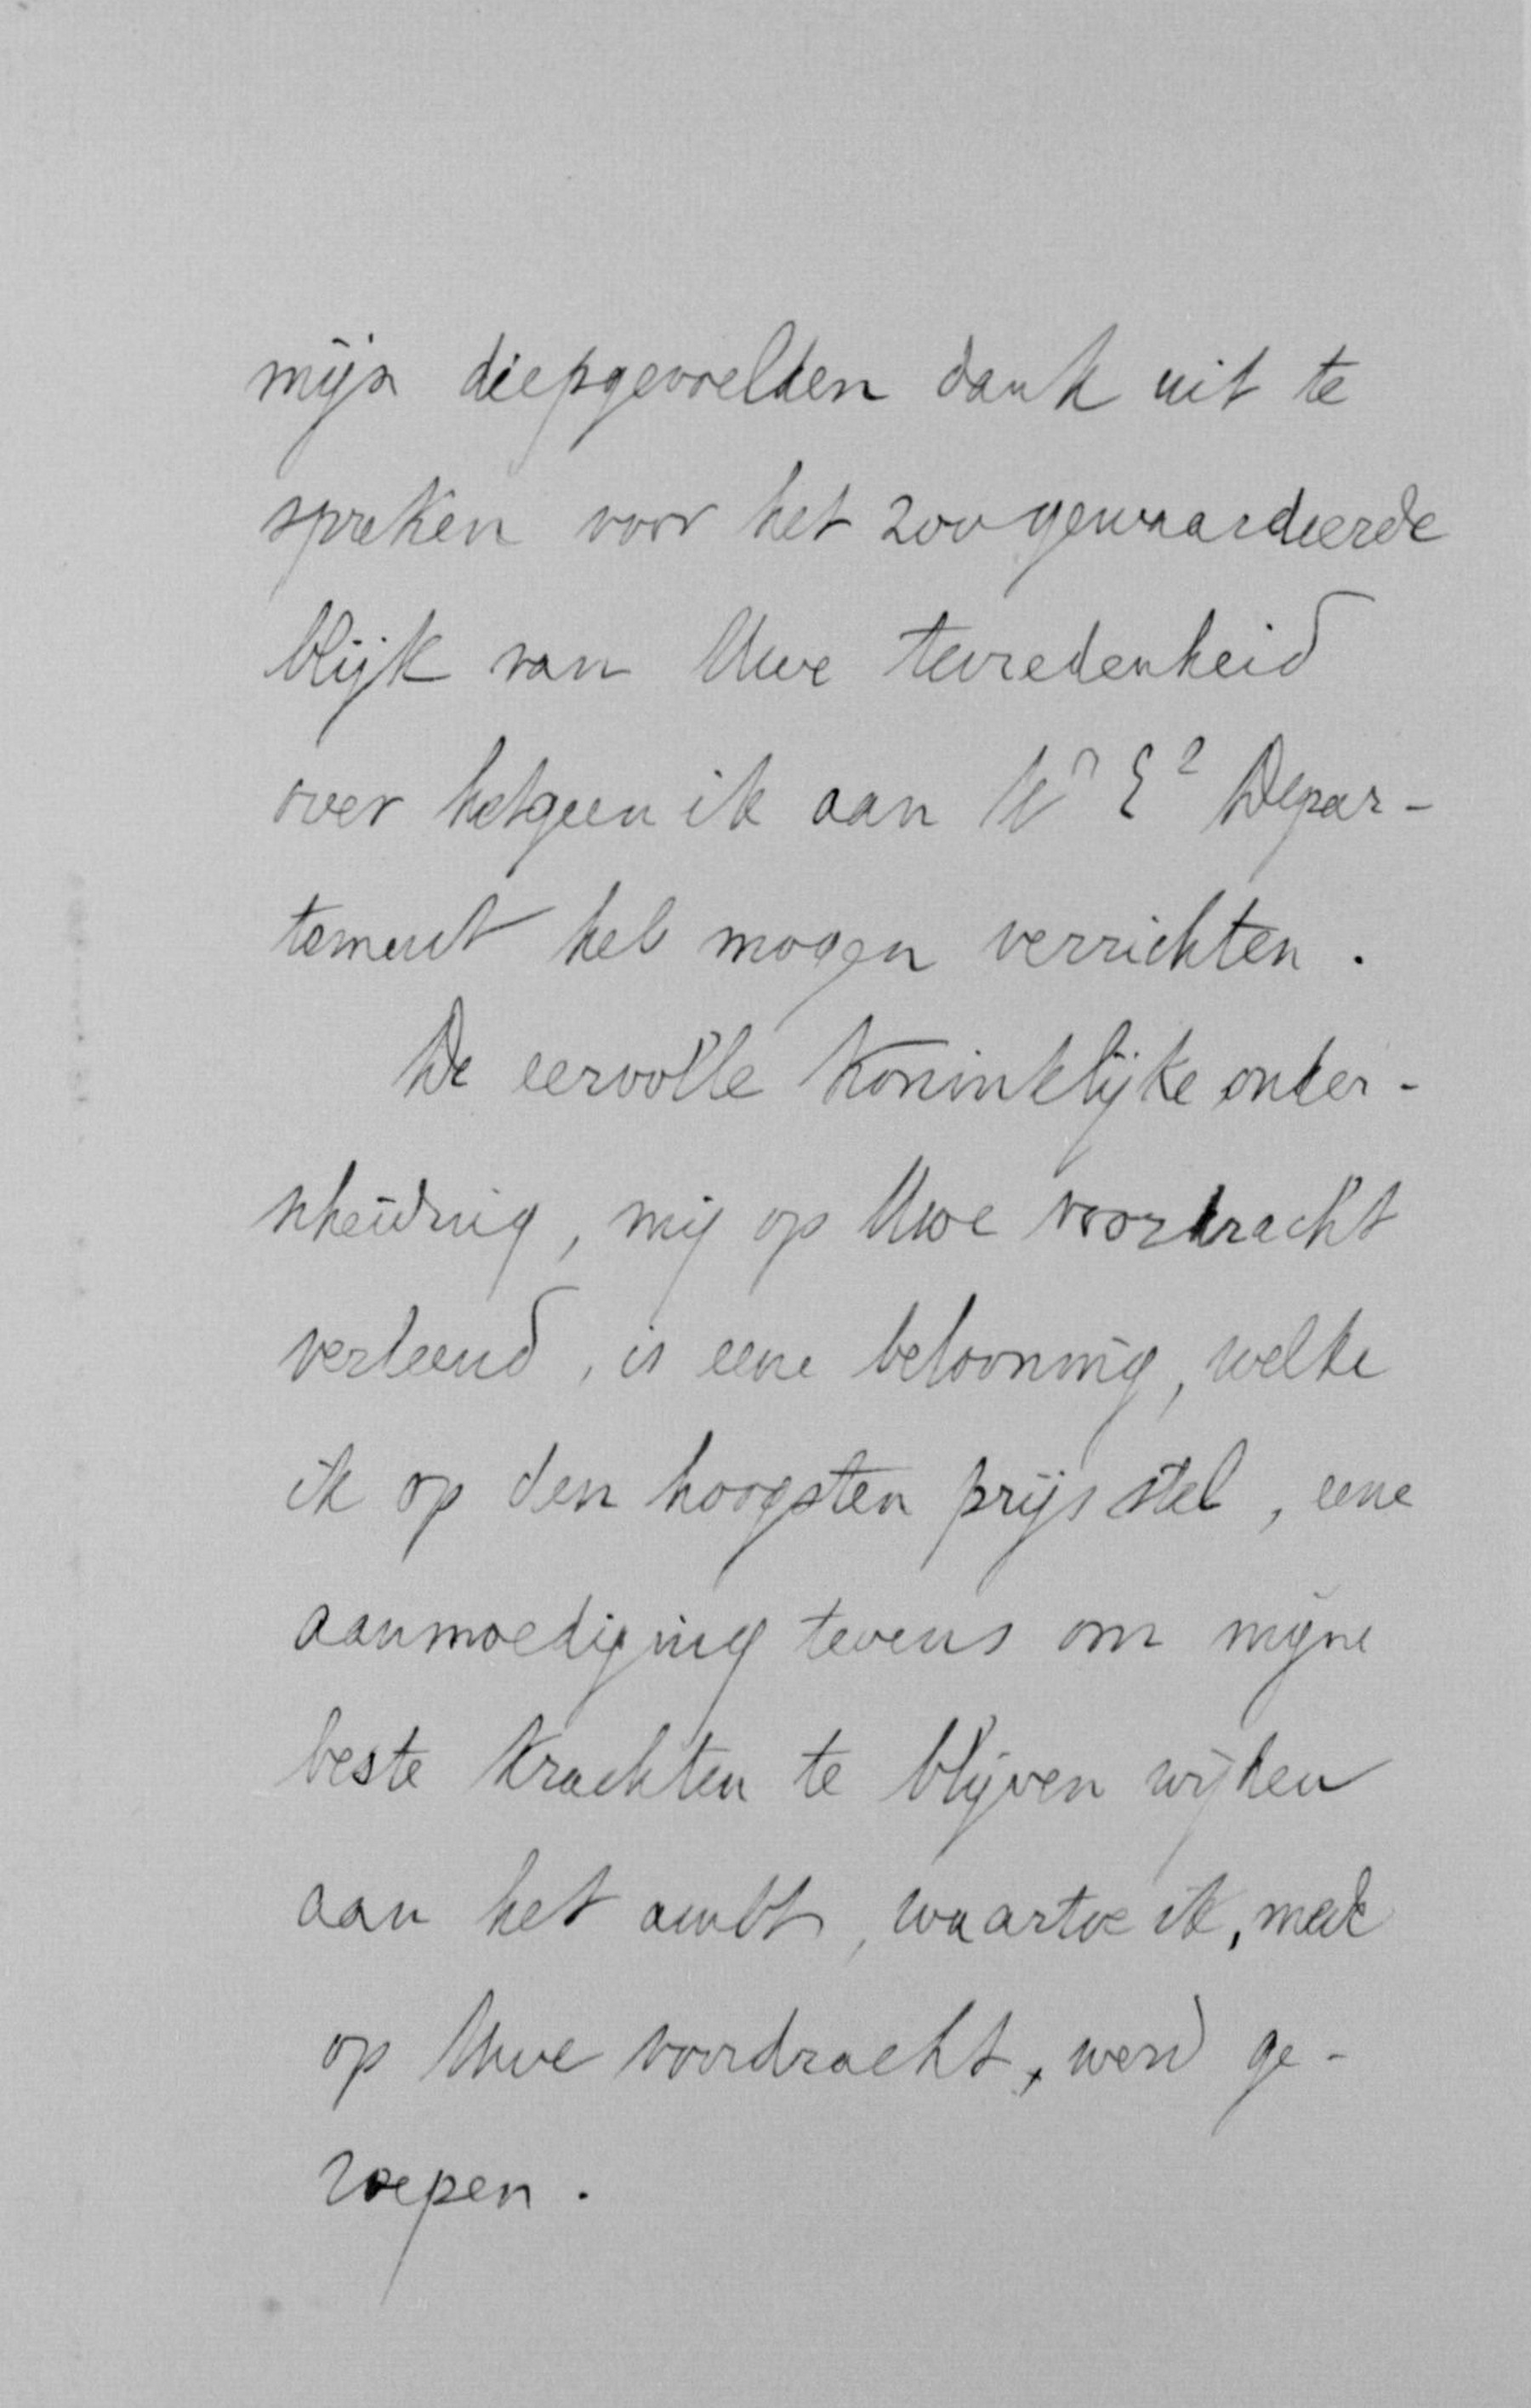 mijn diepgevoelden dank uit te
spreken voor het zoo gewaardeerde
blijk van Uwe tevredenheid
over hetgeen ik aan Ur Es Depar-
tement heb mogen verrichten.
De eervolle Koninklijke onder-
scheiding, mij op Uwe voordracht
verleend, is eene belooning, welke
ik op den hoogsten prijs stel, eene
aanmoediging tevens om mijne
beste krachten te blijven wijden
aan het ambt, waartoe ik, mede
op Uwe voordracht, werd ge-
roepen.